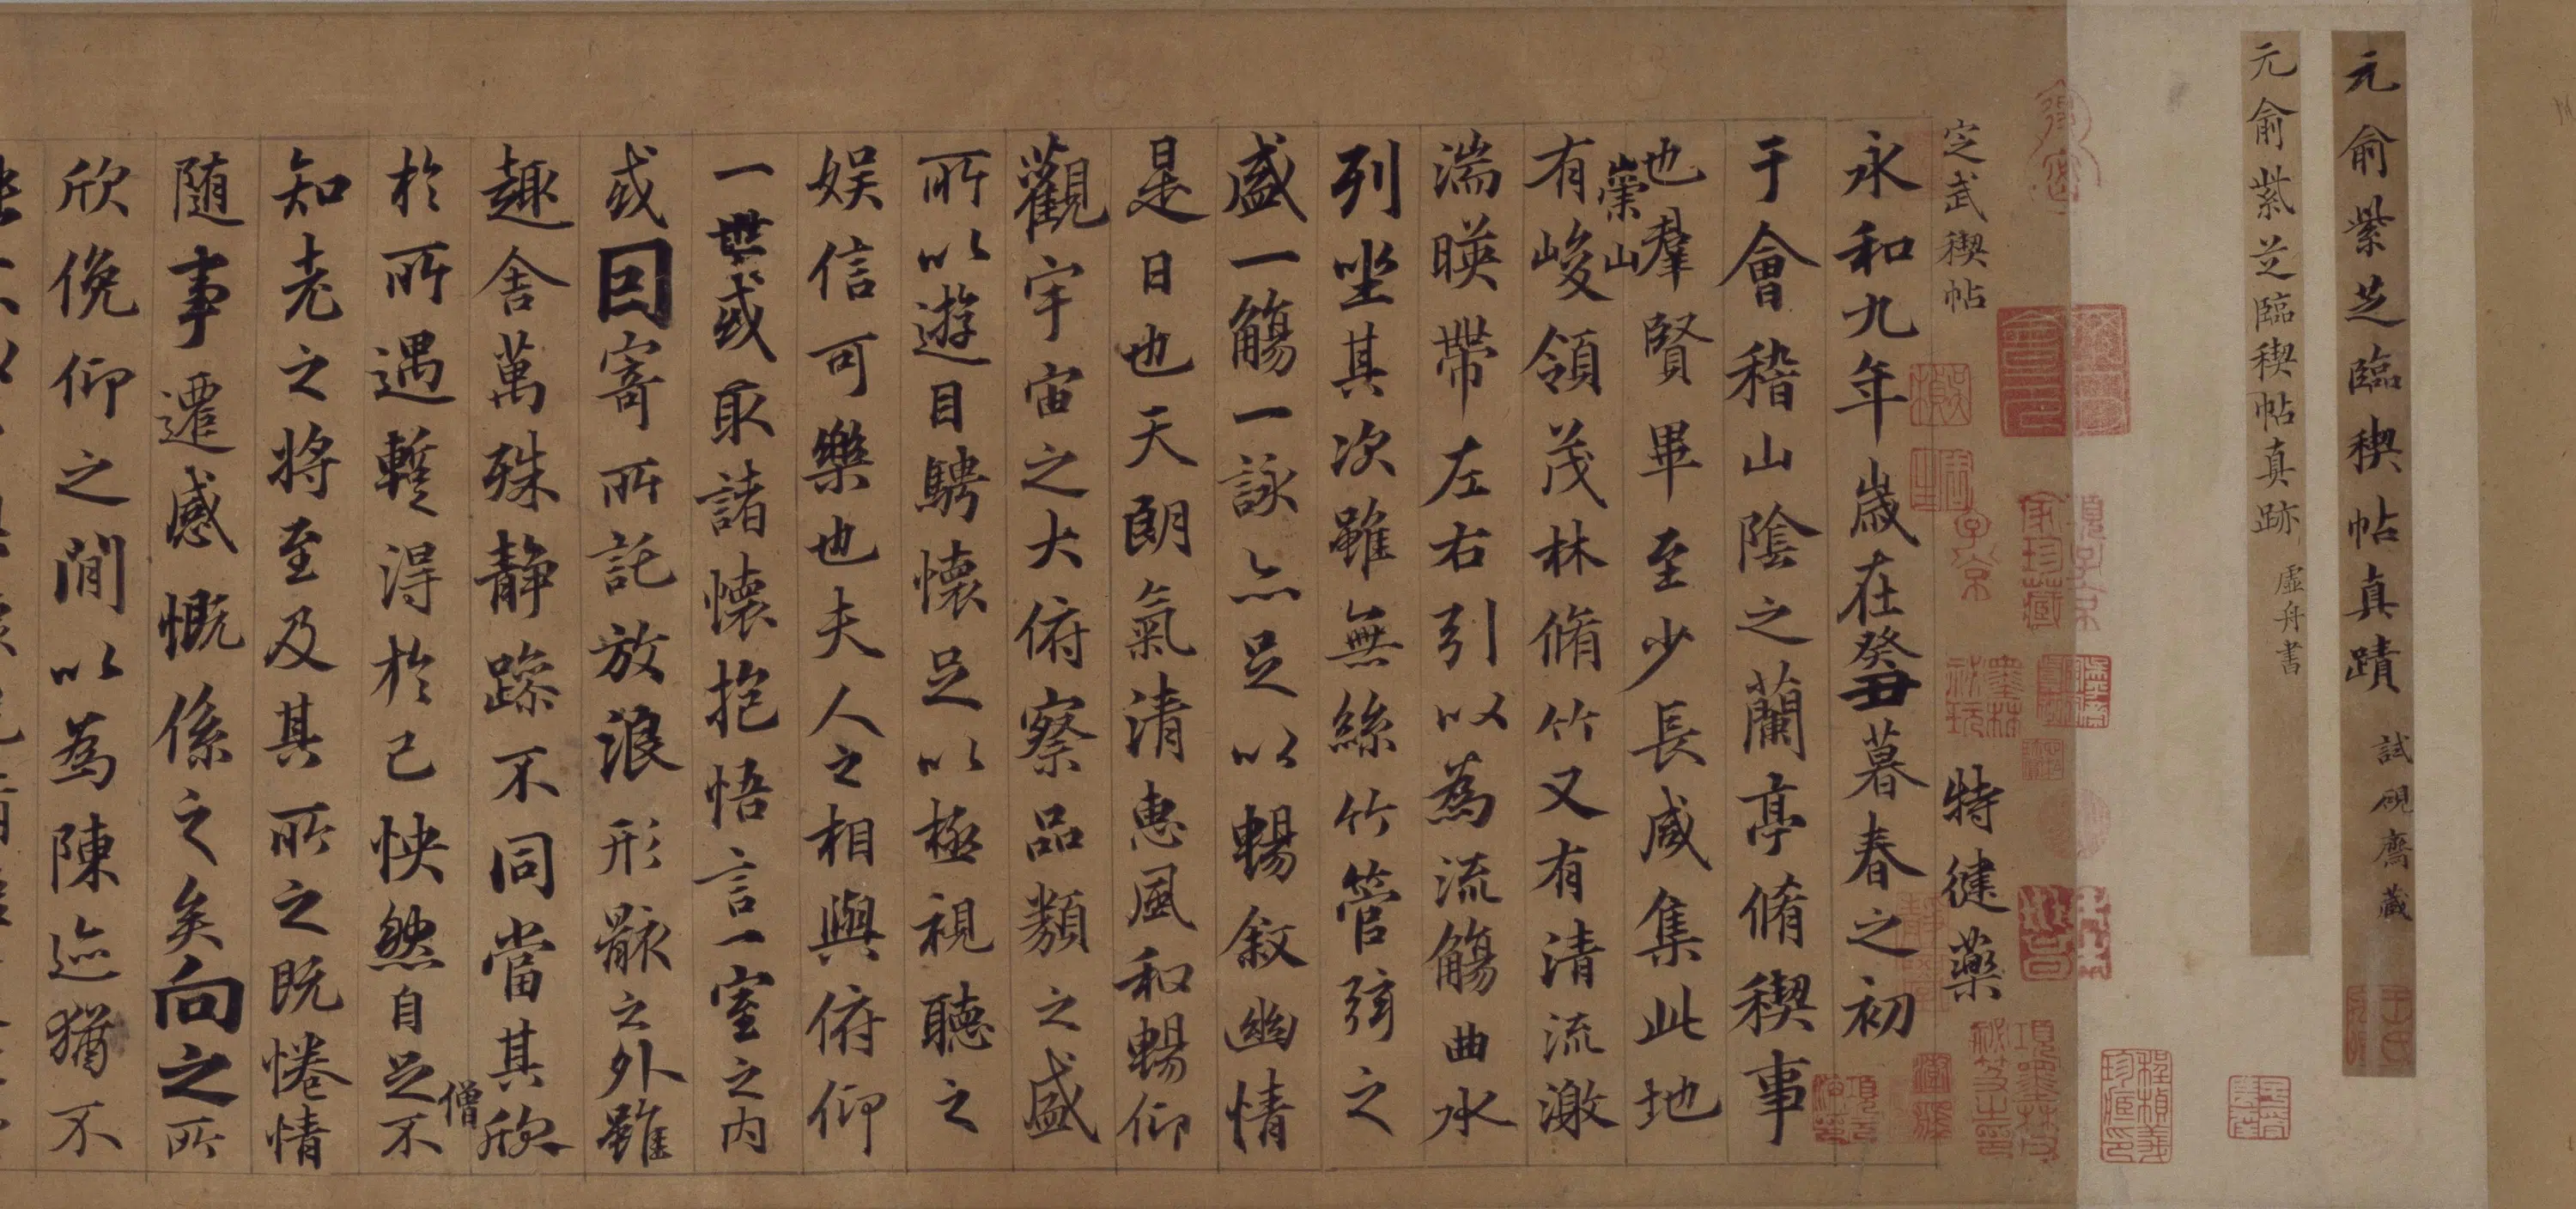 元俞紫芝臨稧帖真蹟 試硯齋藏
元俞紫芝臨稧帖真跡 虛舟書
定武稧帖
特健藥
永和九年歲在癸丑暮春之初
于會稽山陰之蘭亭脩稧事
也羣賢畢至少長咸集此地
崇山
有峻領茂林脩竹又有清流激
湍暎帶左右引以為流觴曲水
列坐其次雖無絲竹管弦之
盛一觴一詠亦足以暢敘幽情
是日也天朗氣清惠風和暢仰
觀宇宙之大俯察品類之盛
所以遊目騁懷足以極視聽之
娛信可樂也夫人之相與俯仰
一世或取諸懷抱悟言一室之內
或因寄所託放浪形骸之外雖
趣舍萬殊靜躁不同當其欣
僧
於所遇暫得於己怏然自足不
知老之將至及其所之既惓情
隨事遷感慨係之矣向之所
欣俛仰之閒以為陳迹猶不